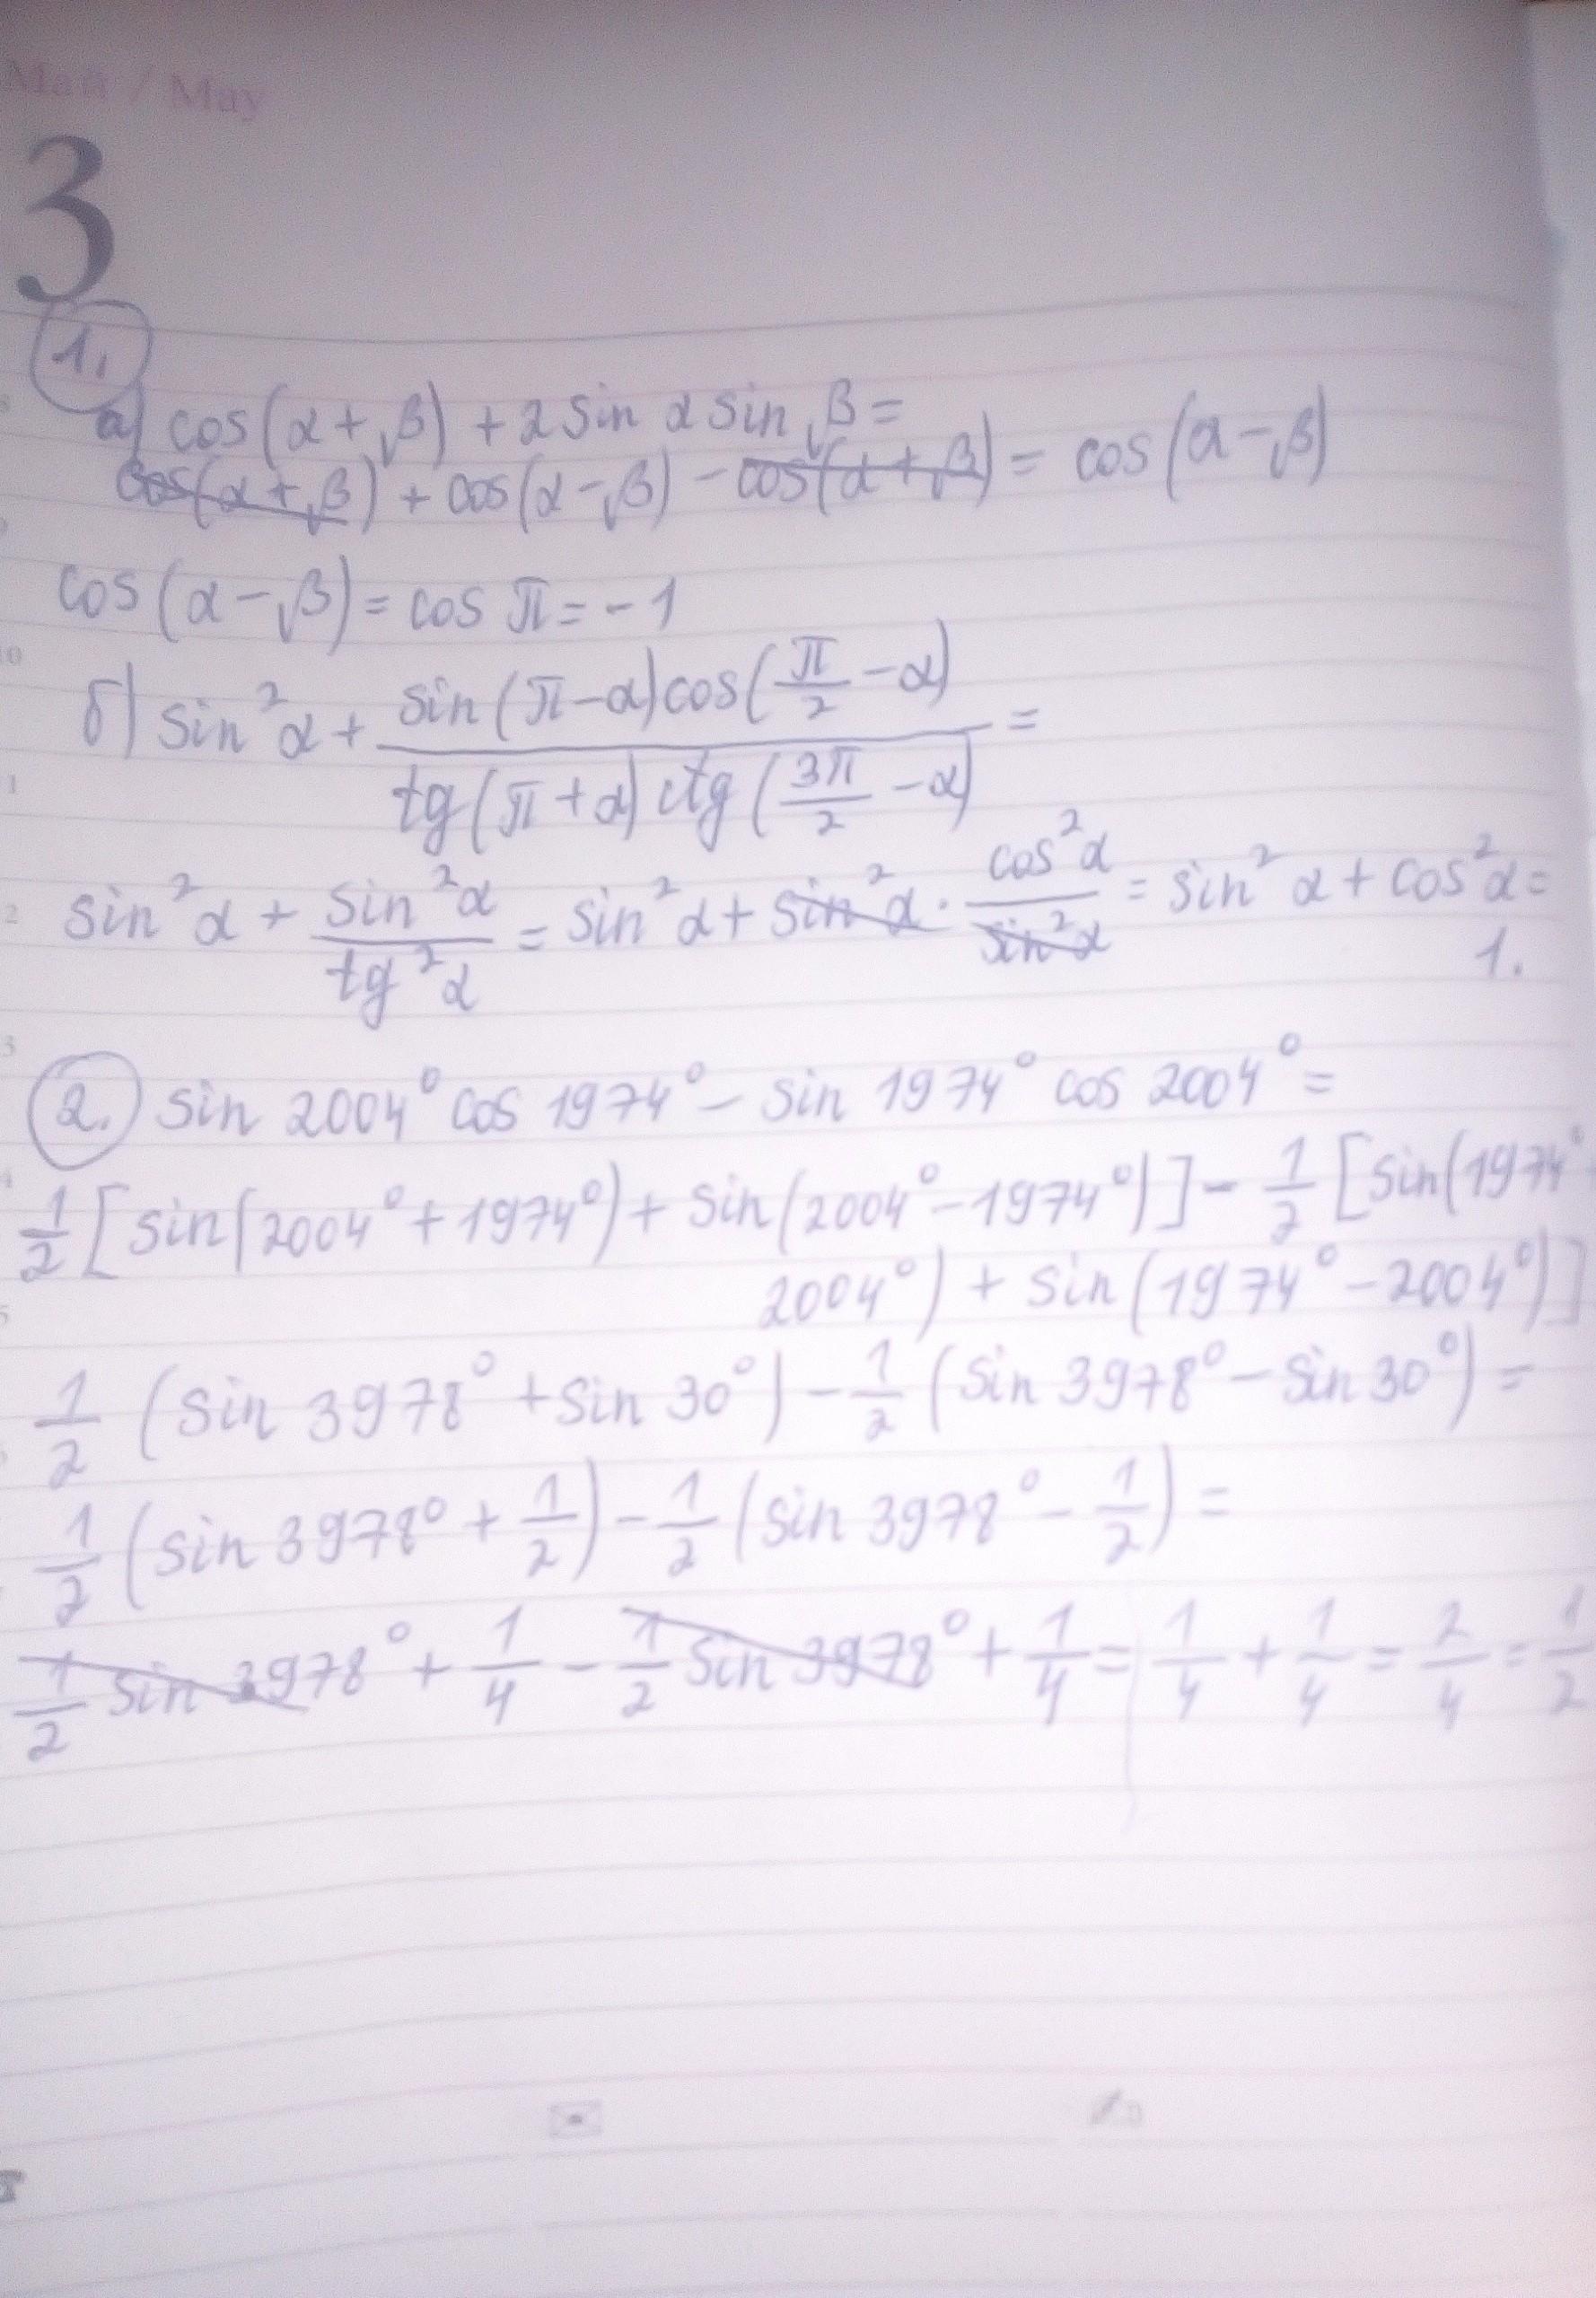 Май / May
3
1.
а) cos(α+β) + 2 sin α sin β =
cos(α+β) + cos(α-β) - cos(α+β) = cos(α-β)
cos(α-β) = cos π = -1
б) sin²α + sin(π-α)cos(π/2 -α) / tg(π+α) ctg(3π/2 -α) =
sin²α + sin²α/tg²α = sin²α + sin²α · cos²α/sin²α = sin²α + cos²α =
1.
2. sin 2004° cos 1974° - sin 1974° cos 2004° =
1/2 [sin(2004° + 1974°) + sin(2004° - 1974°)] - 1/2 [sin(1974°
2004°) + sin(1974° - 2004°)]
1/2 (sin 3978° + sin 30°) - 1/2 (sin 3978° - sin 30°) =
1/2 (sin 3978° + 1/2) - 1/2 (sin 3978° - 1/2) =
1/2 sin 3978° + 1/4 - 1/2 sin 3978° + 1/4 = 1/4 + 1/4 = 2/4 = 1/2